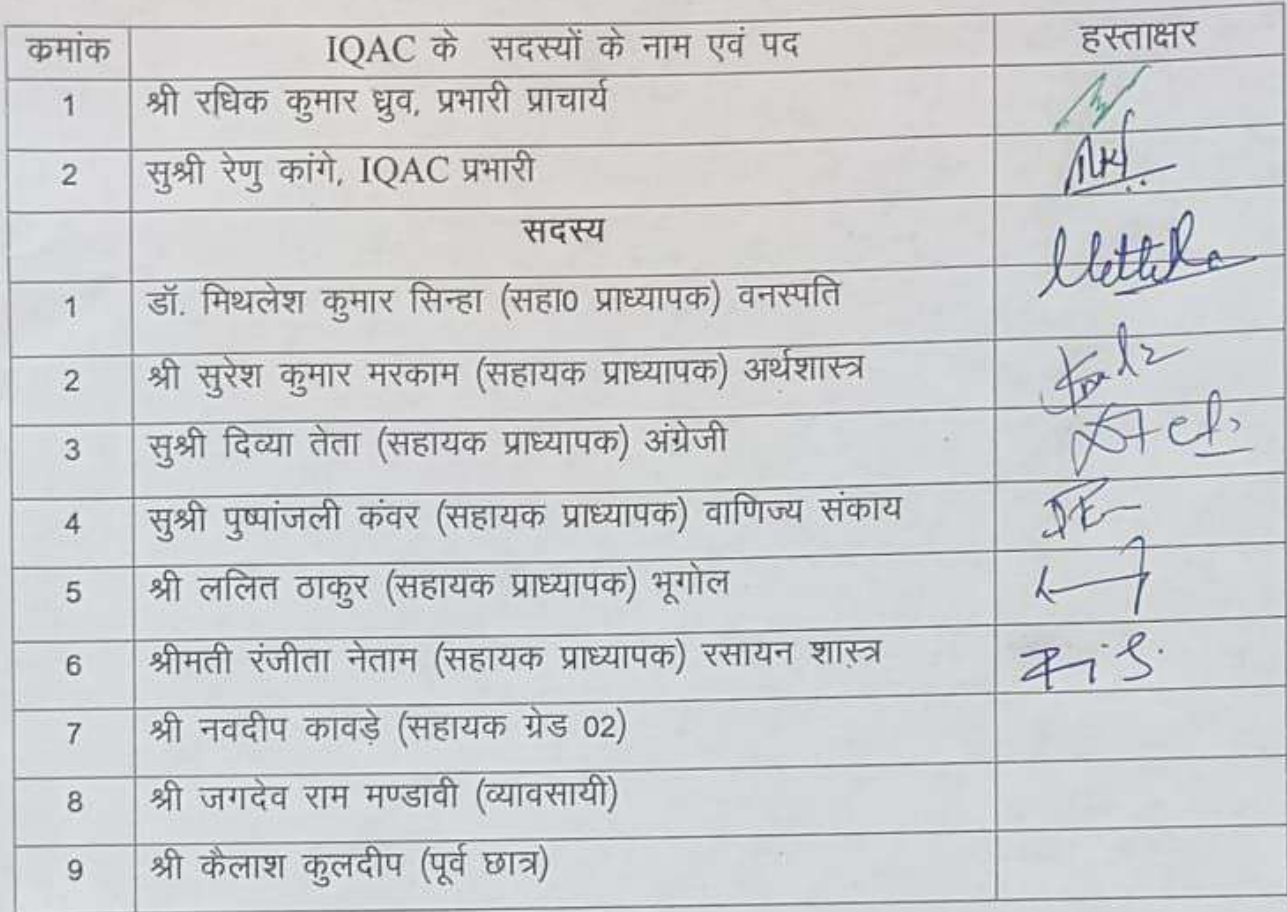 क्रमांक IQAC के सदस्यों के नाम एवं पद हस्ताक्षर
1 श्री रधिक कुमार ध्रुव, प्रभारी प्राचार्य
2 सुश्री रेणु कांगे, IQAC प्रभारी
सदस्य
1 डॉ. मिथलेश कुमार सिन्हा (सहा0 प्राध्यापक) वनस्पति
2 श्री सुरेश कुमार मरकाम (सहायक प्राध्यापक) अर्थशास्त्र
3 सुश्री दिव्या तेता (सहायक प्राध्यापक) अंग्रेजी
4 सुश्री पुष्पांजली कंवर (सहायक प्राध्यापक) वाणिज्य संकाय
5 श्री ललित ठाकुर (सहायक प्राध्यापक) भूगोल
6 श्रीमती रंजीता नेताम (सहायक प्राध्यापक) रसायन शास्त्र
7 श्री नवदीप कावड़े (सहायक ग्रेड 02)
8 श्री जगदेव राम मण्डावी (व्यावसायी)
9 श्री कैलाश कुलदीप (पूर्व छात्र)